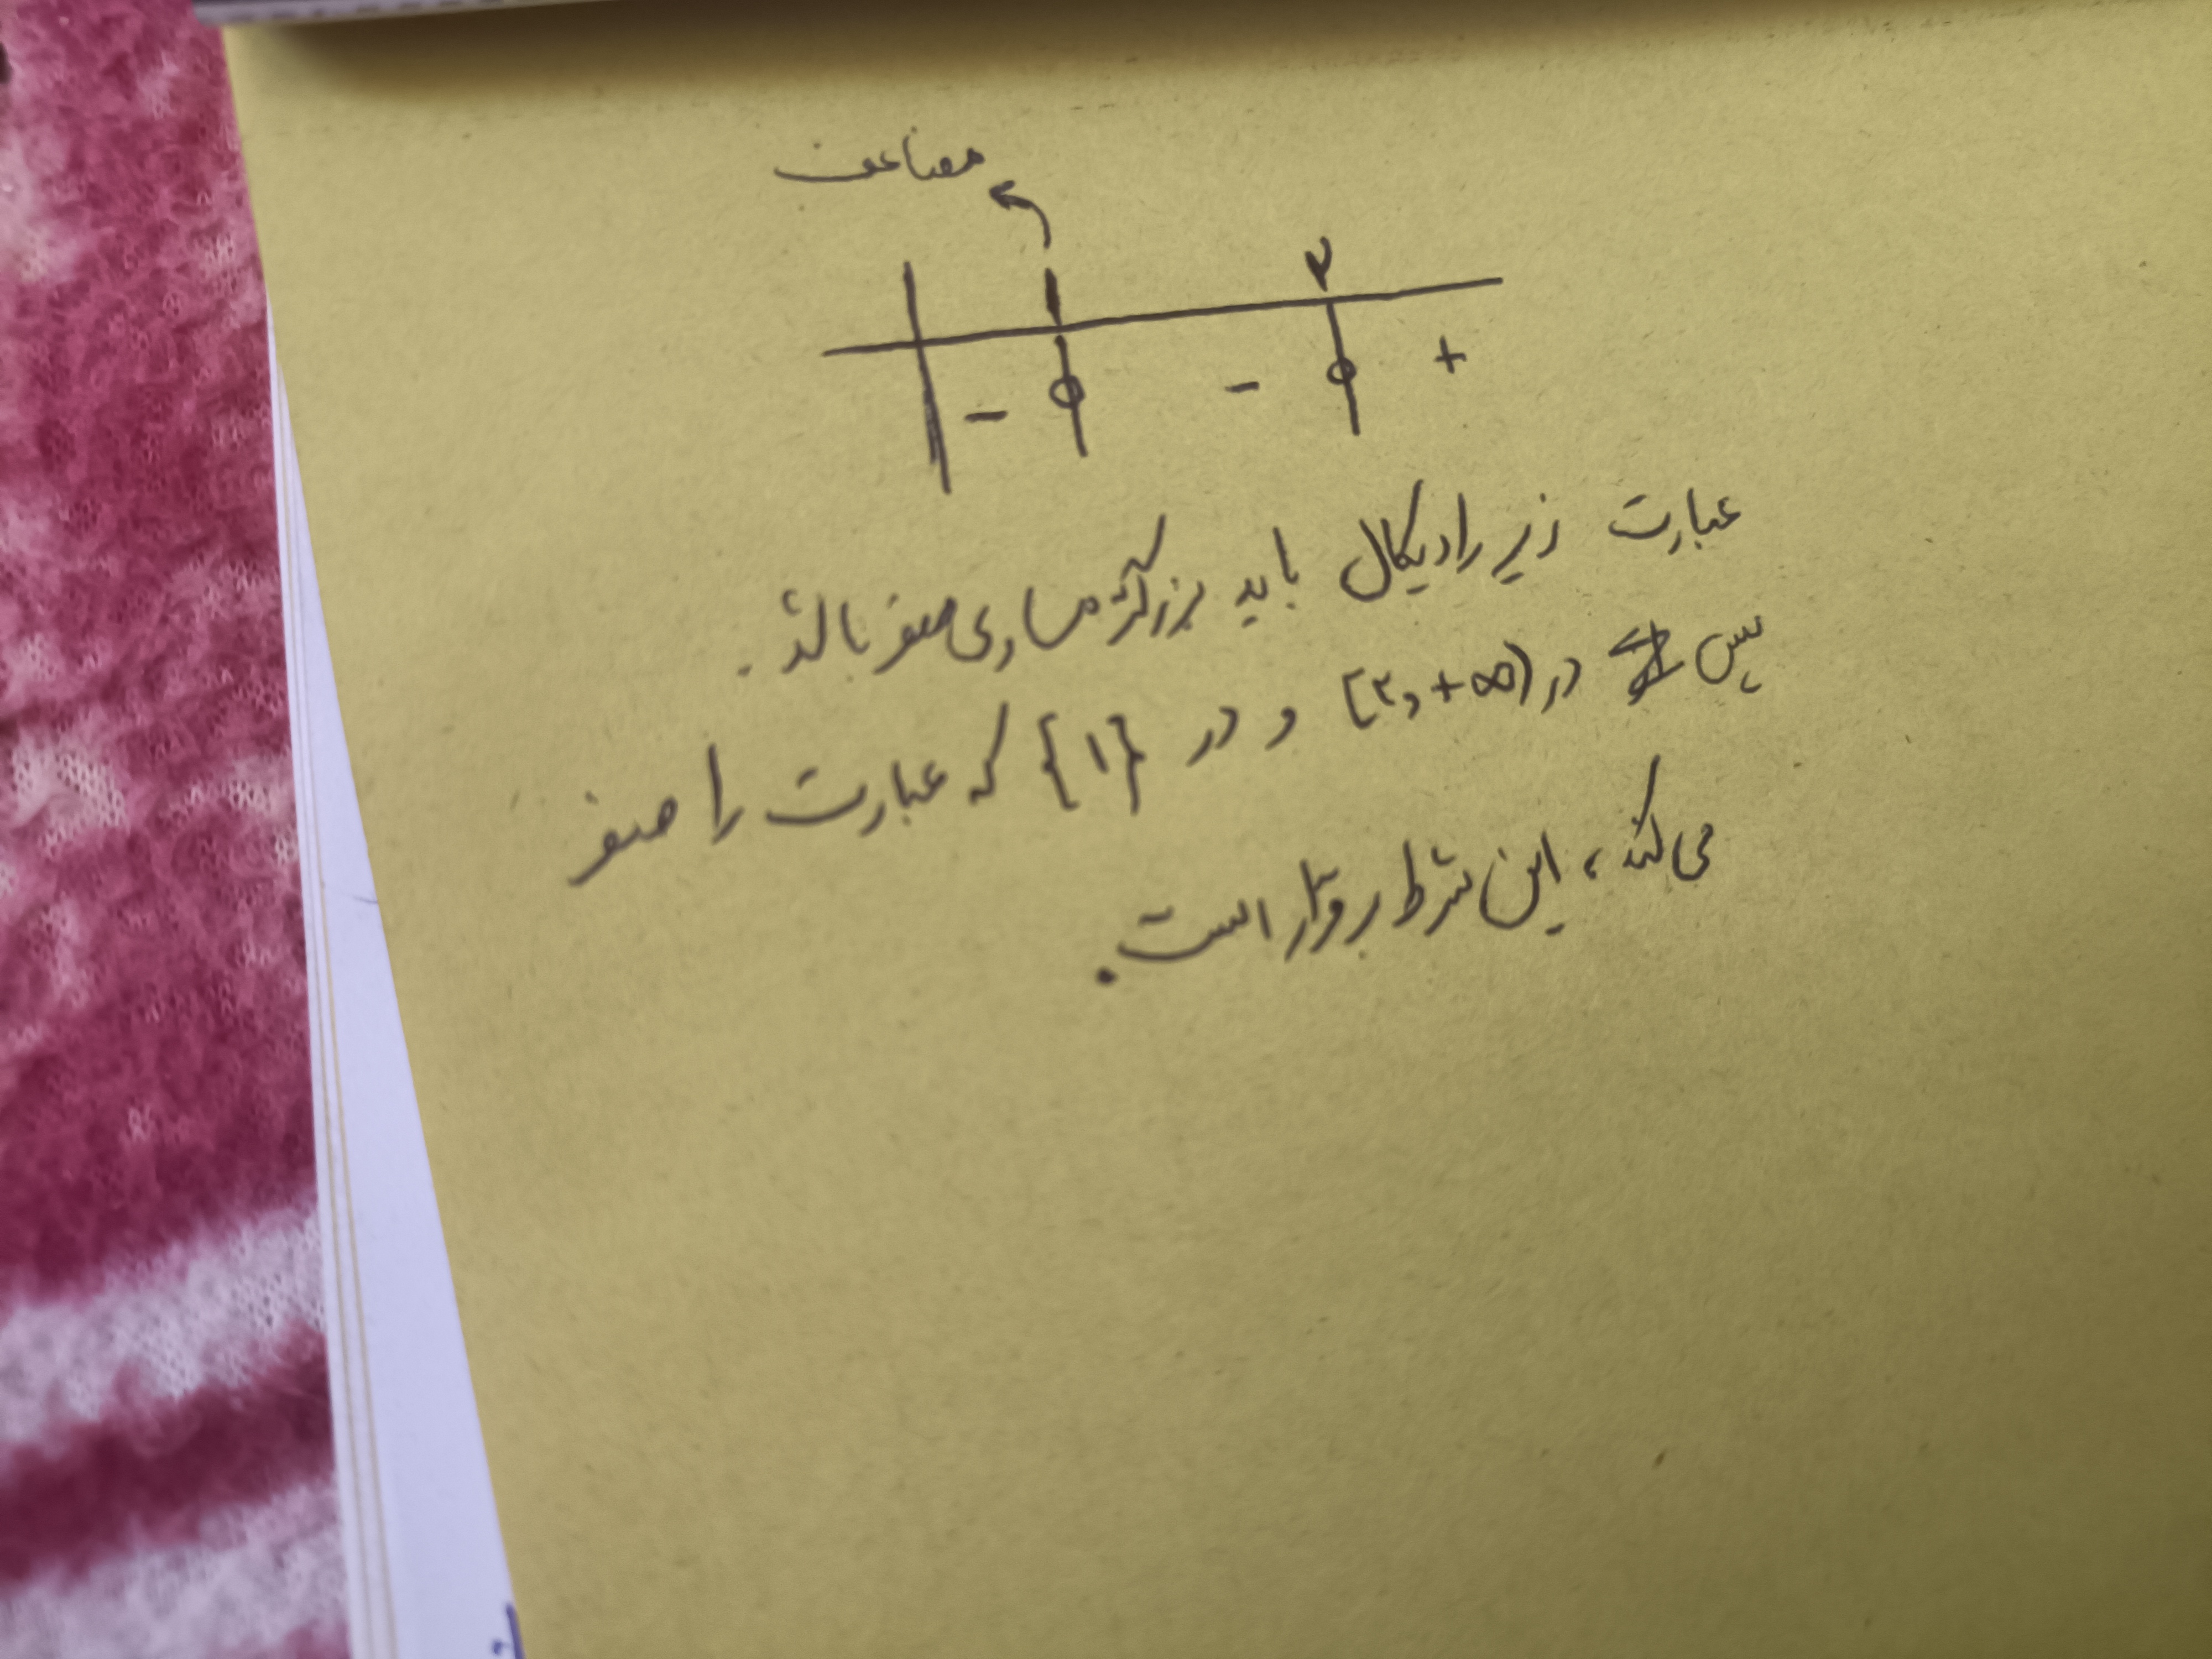 مضاعف
۱ ۲
- ○ - ○ +
عبارت زیر رادیکال باید بزرگتر مساوی صفر باشد.
پس در [۲,+∞) و در {۱} که عبارت را صفر
می‌کند، این شرط برقرار است.